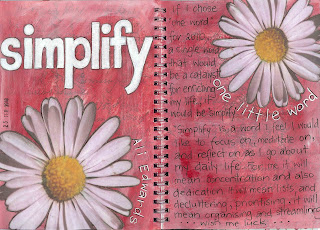 simplify
Ali Edwards
if I chose
one word
for 2010
a single word
that would
be a catalyst
for enriching
my life, it
would be simplify
one little word
"Simplify" is a word I feel I would
like to focus on, meditate on,
and reflect on as I go about
my daily life. For me it will
mean concentration and also
dedication. It will mean lists and
decluttering, prioritising. It will
mean organising and streamlining
... wish me luck ...